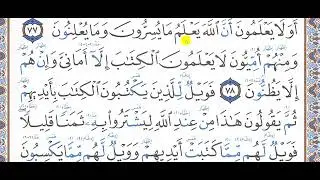 أَوَلَا يَعْلَمُونَ أَنَّ ٱللَّهَ يَعْلَمُ مَا يُسِرُّونَ وَمَا يُعْلِنُونَ ٧٧
وَمِنْهُمْ أُمِّيُّونَ لَا يَعْلَمُونَ ٱلْكِتَٰبَ إِلَّآ أَمَانِىَّ وَإِنْ هُمْ
إِلَّا يَظُنُّونَ ٧٨ فَوَيْلٌ لِّلَّذِينَ يَكْتُبُونَ ٱلْكِتَٰبَ بِأَيْدِيهِمْ
ثُمَّ يَقُولُونَ هَٰذَا مِنْ عِندِ ٱللَّهِ لِيَشْتَرُوا۟ بِهِۦ ثَمَنًا قَلِيلًا
فَوَيْلٌ لَّهُم مِّمَّا كَتَبَتْ أَيْدِيهِمْ وَوَيْلٌ لَّهُم مِّمَّا يَكْسِبُونَ